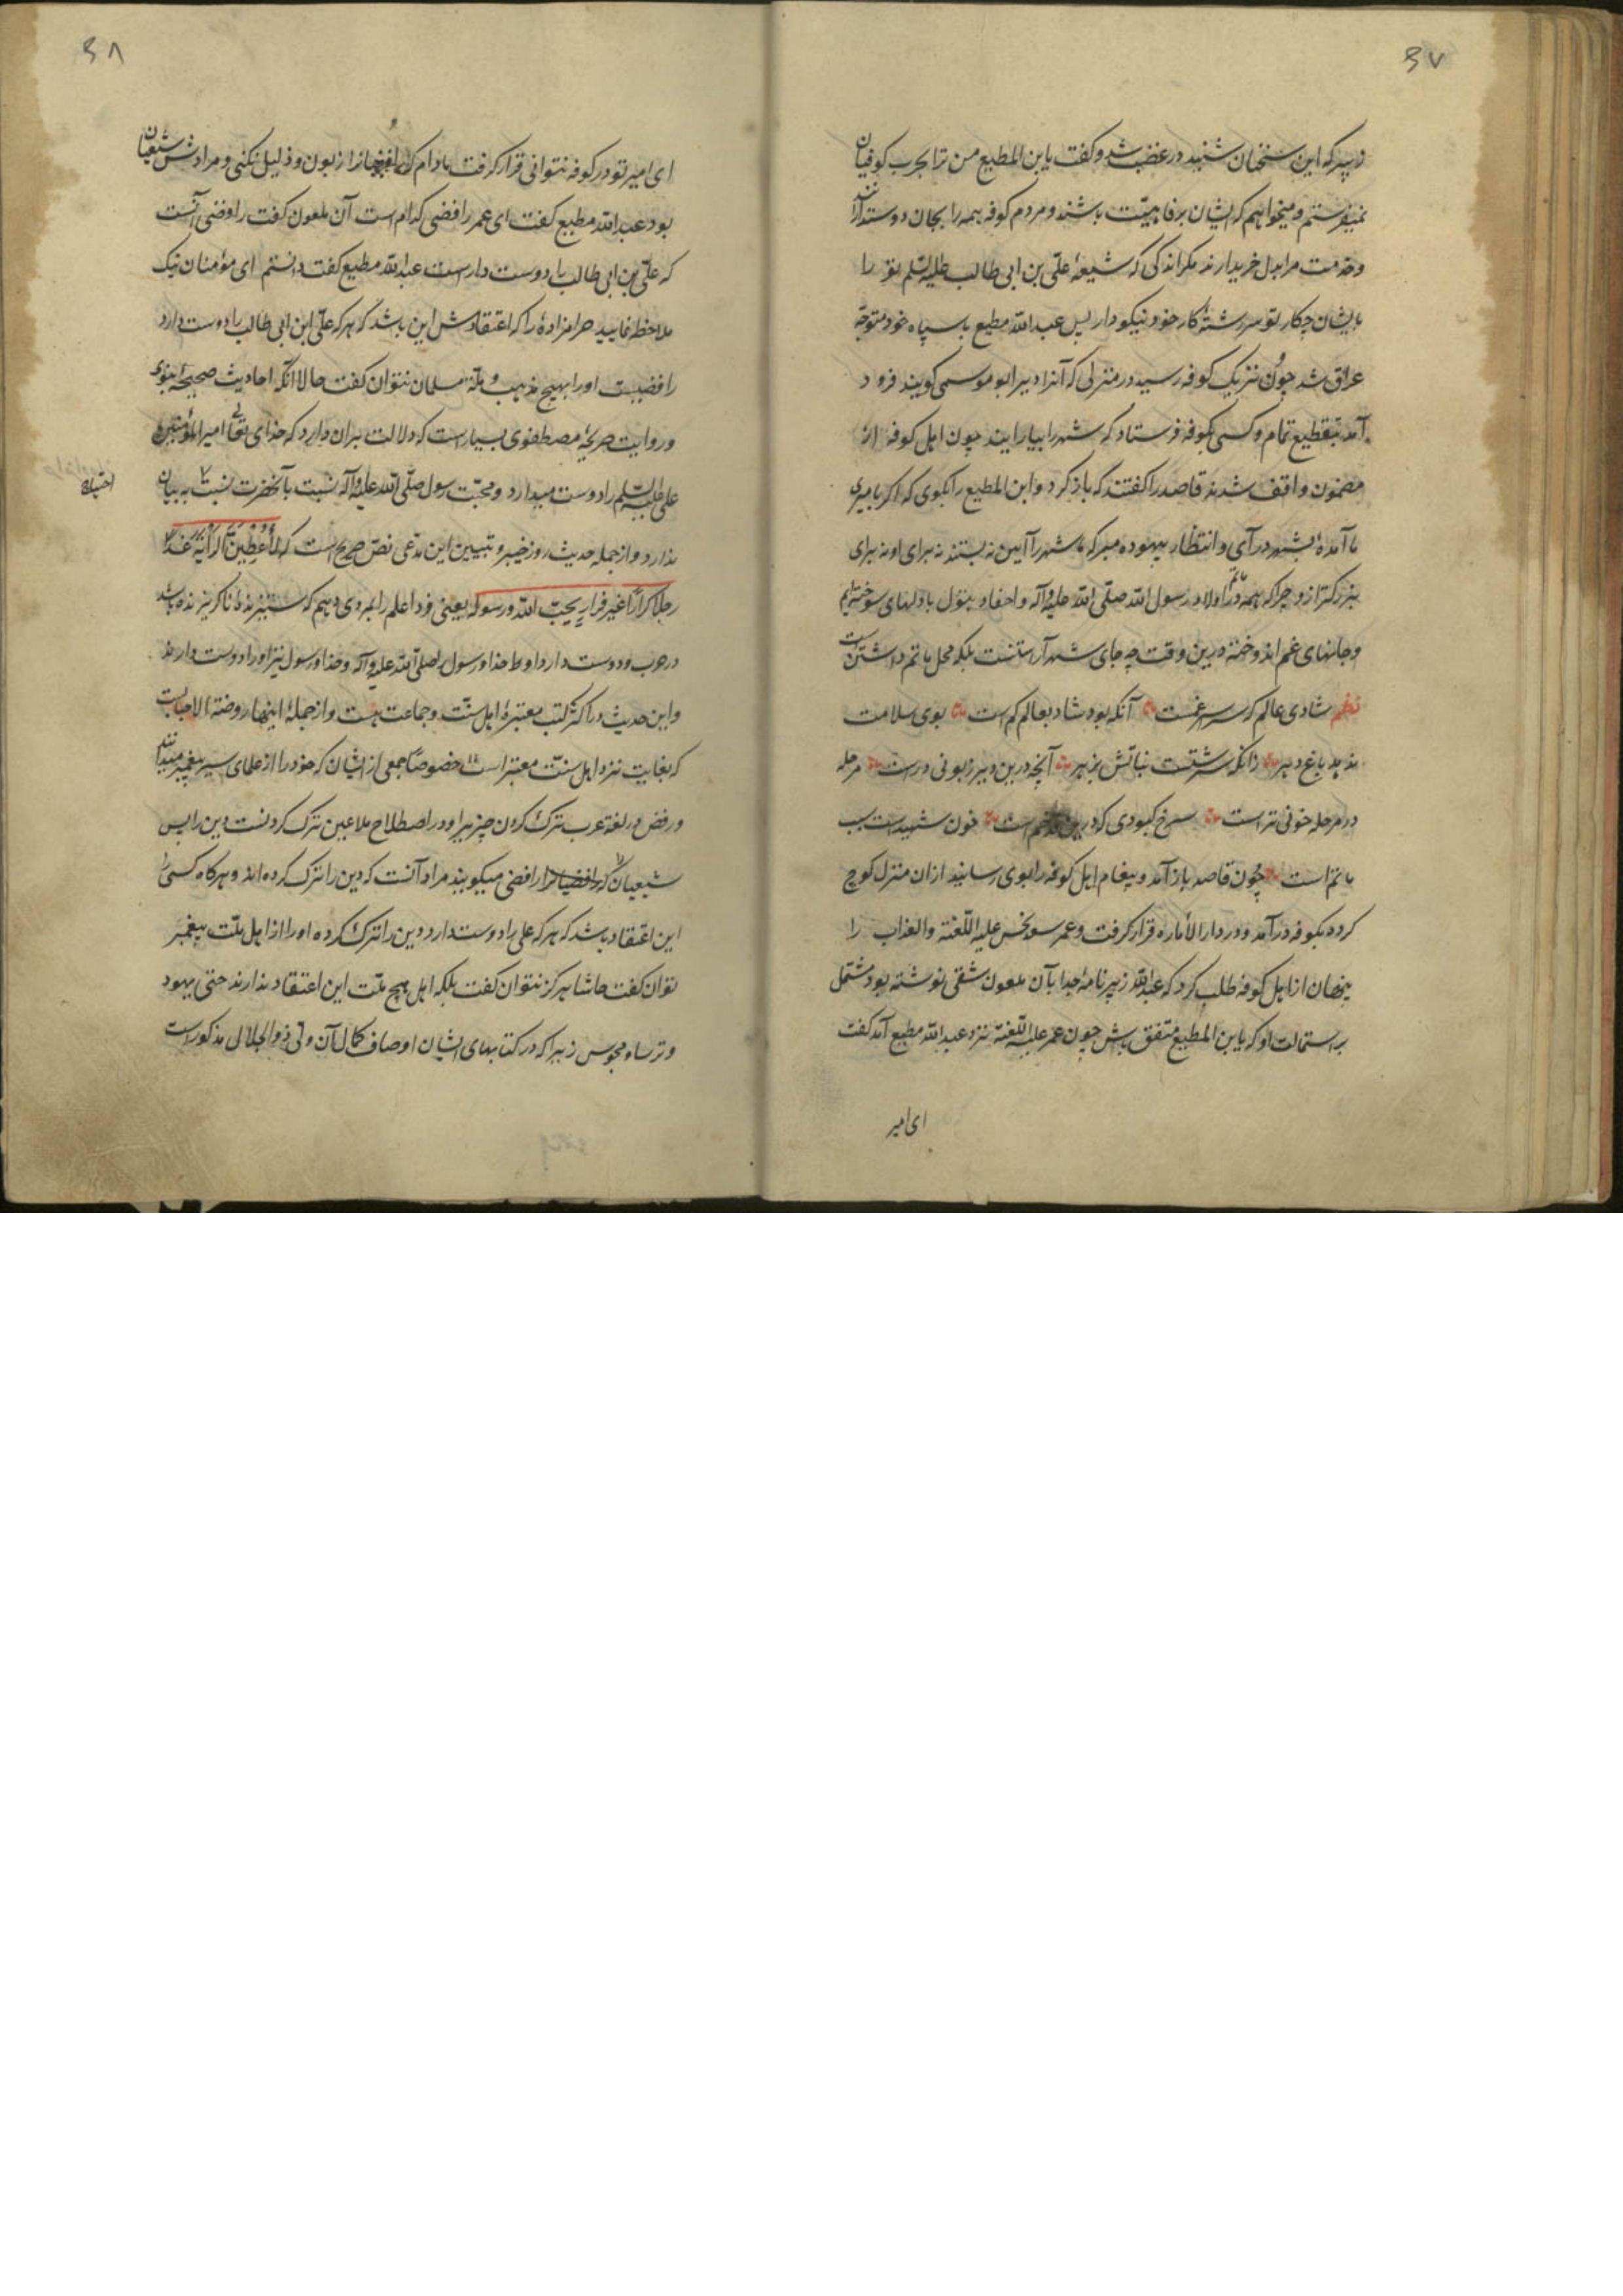 ۳۷
زبیر که این سخنان شنید در غضب شد و کفت یا بن المطیع من ترا بحرب کوفیان
نمیفرستم و میخواهم که ایشان برفاهیّت باشند و مردم کوفه همه را بجان دوستدارند
و خدمت مرا بدل خریدارند مکر اندکی که شیعهٔ علّی بن ابی طالب علیه السّلم تو را
بایشان چکار تو سررشتهٔ کار خود نیکو دار پس عبد اللّه مطیع با سپاه خود متوجّه
عراق شد چون نزدیک کوفه رسید در منزلی که آنرا دیر ابو موسی کویند فرود
آمد بتقطیع تمام و کسی بکوفه فرستاد که شهر را بیارایند چون اهل کوفه از
مضمون واقف شدند قاصد را کفتند که باز کرد و ابن المطیع را بکوی که اکر بامیری
ما آمدهٔ بشهر در آی و انتظار بیهوده مبر که ما شهر را آیین نه بستند نه برای او نه برای
بزرکتر از و چرا که همه در ماتم اولاد رسول اللّه صلّی اللّه علیه و آله و احفاد بتول با دلهای سوخته‌ایم
و جانهای غم اندوخته درین وقت چه جای شهر آراستنست بلکه محل ماتم داشتن است
نظم شادی عالم که سراسر غمست آنکه بود شاد بعالم کم است بوی سلامت
ندهد باغ دهر زانکه سرشتست نباتش بزهر آنچه درین دیر زبونی درست مرحله
در مرحله خونی تر است سرخ کبودی که درین است خون شهیداست بسب
ماتم است چون قاصد باز آمد و پیغام اهل کوفه را بوی رسانید از ان منزل کوچ
کرده بکوفه در آمد و در دار الأماره قرار کرفت و عمر سعد نحس علیه اللّعنة و العذاب را
پنهان از اهل کوفه طلب کرد که عبد اللّه زبیر نامه جدا بآن ملعون شقی نوشته بود مشتمل
بر استمالت او که با بن المطیع متفق باش چون عمر علیه اللّعنة نزد عبد اللّه مطیع آمد کفت
ای امیر
۳۸
ای امیر تو در کوفه نتوانی قرار کرفت مادام که رافضیانرا زبون و ذلیل نکنی و مرادش شیعیان
بود عبد اللّه مطیع کفت ای عمر رافضی کدام است آن ملعون کفت رافضی آنست
که علّی بن ابی طالب را دوست دار است عبد اللّه مطیع کفت دانستم ای مؤمنان نیک
ملاحظه نمایید حرامزادهٔ را که اعتقادش این باشد که هر که علّی ابن ابی طالب را دوست دارد
رافضیست او را بهیچ مذهب و ملّة مسلمان نتوان کفت حالا آنکه احادیث صحیحهٔ نبوی
و روایت صریحهٔ مصطفوی بسیار است که دلالت بران دارد که خدای تعالی امیر المؤمنین
علی علیه السّلم را دوست میدارد و محبّت رسول صلّی اللّه علیه و آله نسبت بآنحضرت نسبت به بیان
احتیاج
ندارد و از جمله حدیث روز خیبر و تبیین این مدّعی نصّ صریح است که لأعطینّ الرایة غداً
رجلاً کرّاراً غیر فرّارٍ یحبّ اللّه و رسوله یعنی فردا علم را بمردی دهم که ستیزنده ناکریزنده باشد
در حرب و دوست دارد او خدا و رسول صلّی اللّه علیه و آله و خدا و رسول نیز او را دوست دارند
و این حدیث در اکثر کتب معتبرهٔ اهل سنّت و جماعت هست و از جملهٔ اینها روضة الاحباب است
که بغایت نزد اهل سنّت معتبر است خصوصاً جمعی از ایشان که خود را از علمای سیر پیغمبر میدانند
و رفض در لغة عرب ترک کردن چیزیرا و در اصطلاح ملاعین ترک کردنست دین را پس
شیعیان که را رافضی میکویند مراد آنست که دین را ترک کرده‌اند و هر کاه کسی را
این اعتقاد باشد که هر که علی را دوست دارد دین را ترک کرده او را از اهل ملّت پیغمبر
توان کفت حاشا هرکز نتوان کفت بلکه اهل هیچ ملّت این اعتقاد ندارند حتی یهود
و ترسا و مجوس زیرا که در کتابهای ایشان اوصاف کمال آن ولّی ذو الجلال مذکور است